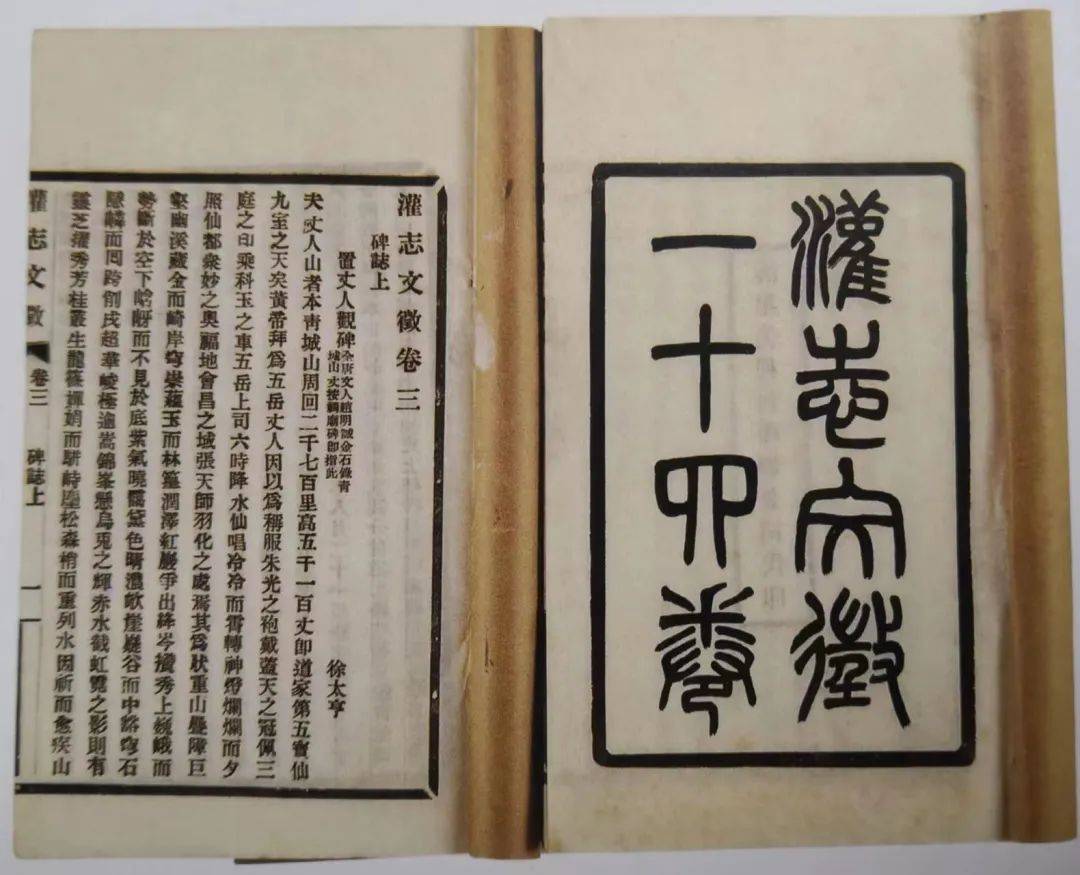 灌志文徵
一十四卷
灌志文徵卷三
碑誌上
置丈人觀碑
全唐文入趙明誠金石錄青
城山丈人祠廟碑即指此
徐太亨
夫丈人山者本青城山周回二千七百里高五千一百丈卽道家第五寶仙
九室之天矣黃帝拜爲五岳丈人因以爲稱服朱光之袍戴蓋天之冠佩三
庭之印乘科玉之車五岳上司六時降水仙唱冷冷而霄轉神燈爛爛而夕
照仙都衆妙之奧福地會昌之域張天師羽化之處焉其爲狀重山疊障巨
壑幽溪藏金而崎岸穹崇蘊玉而林篁潤澤紅巖爭出絳岑攢秀上巍峨而
勢斷於空下岈而不見於底紫氣曉靄黛色晴濃欹崖谷而中豁穹石
隱嶙而回跨創戌超華崚極逾嵩錦峯懸烏兎之輝赤水截虹霓之影則有
靈芝擢秀芳桂叢生龍篠嬋娟而駢峙塵松森梢而重列水因祈而愈疾山
灌志文徵 卷三 碑誌上 一